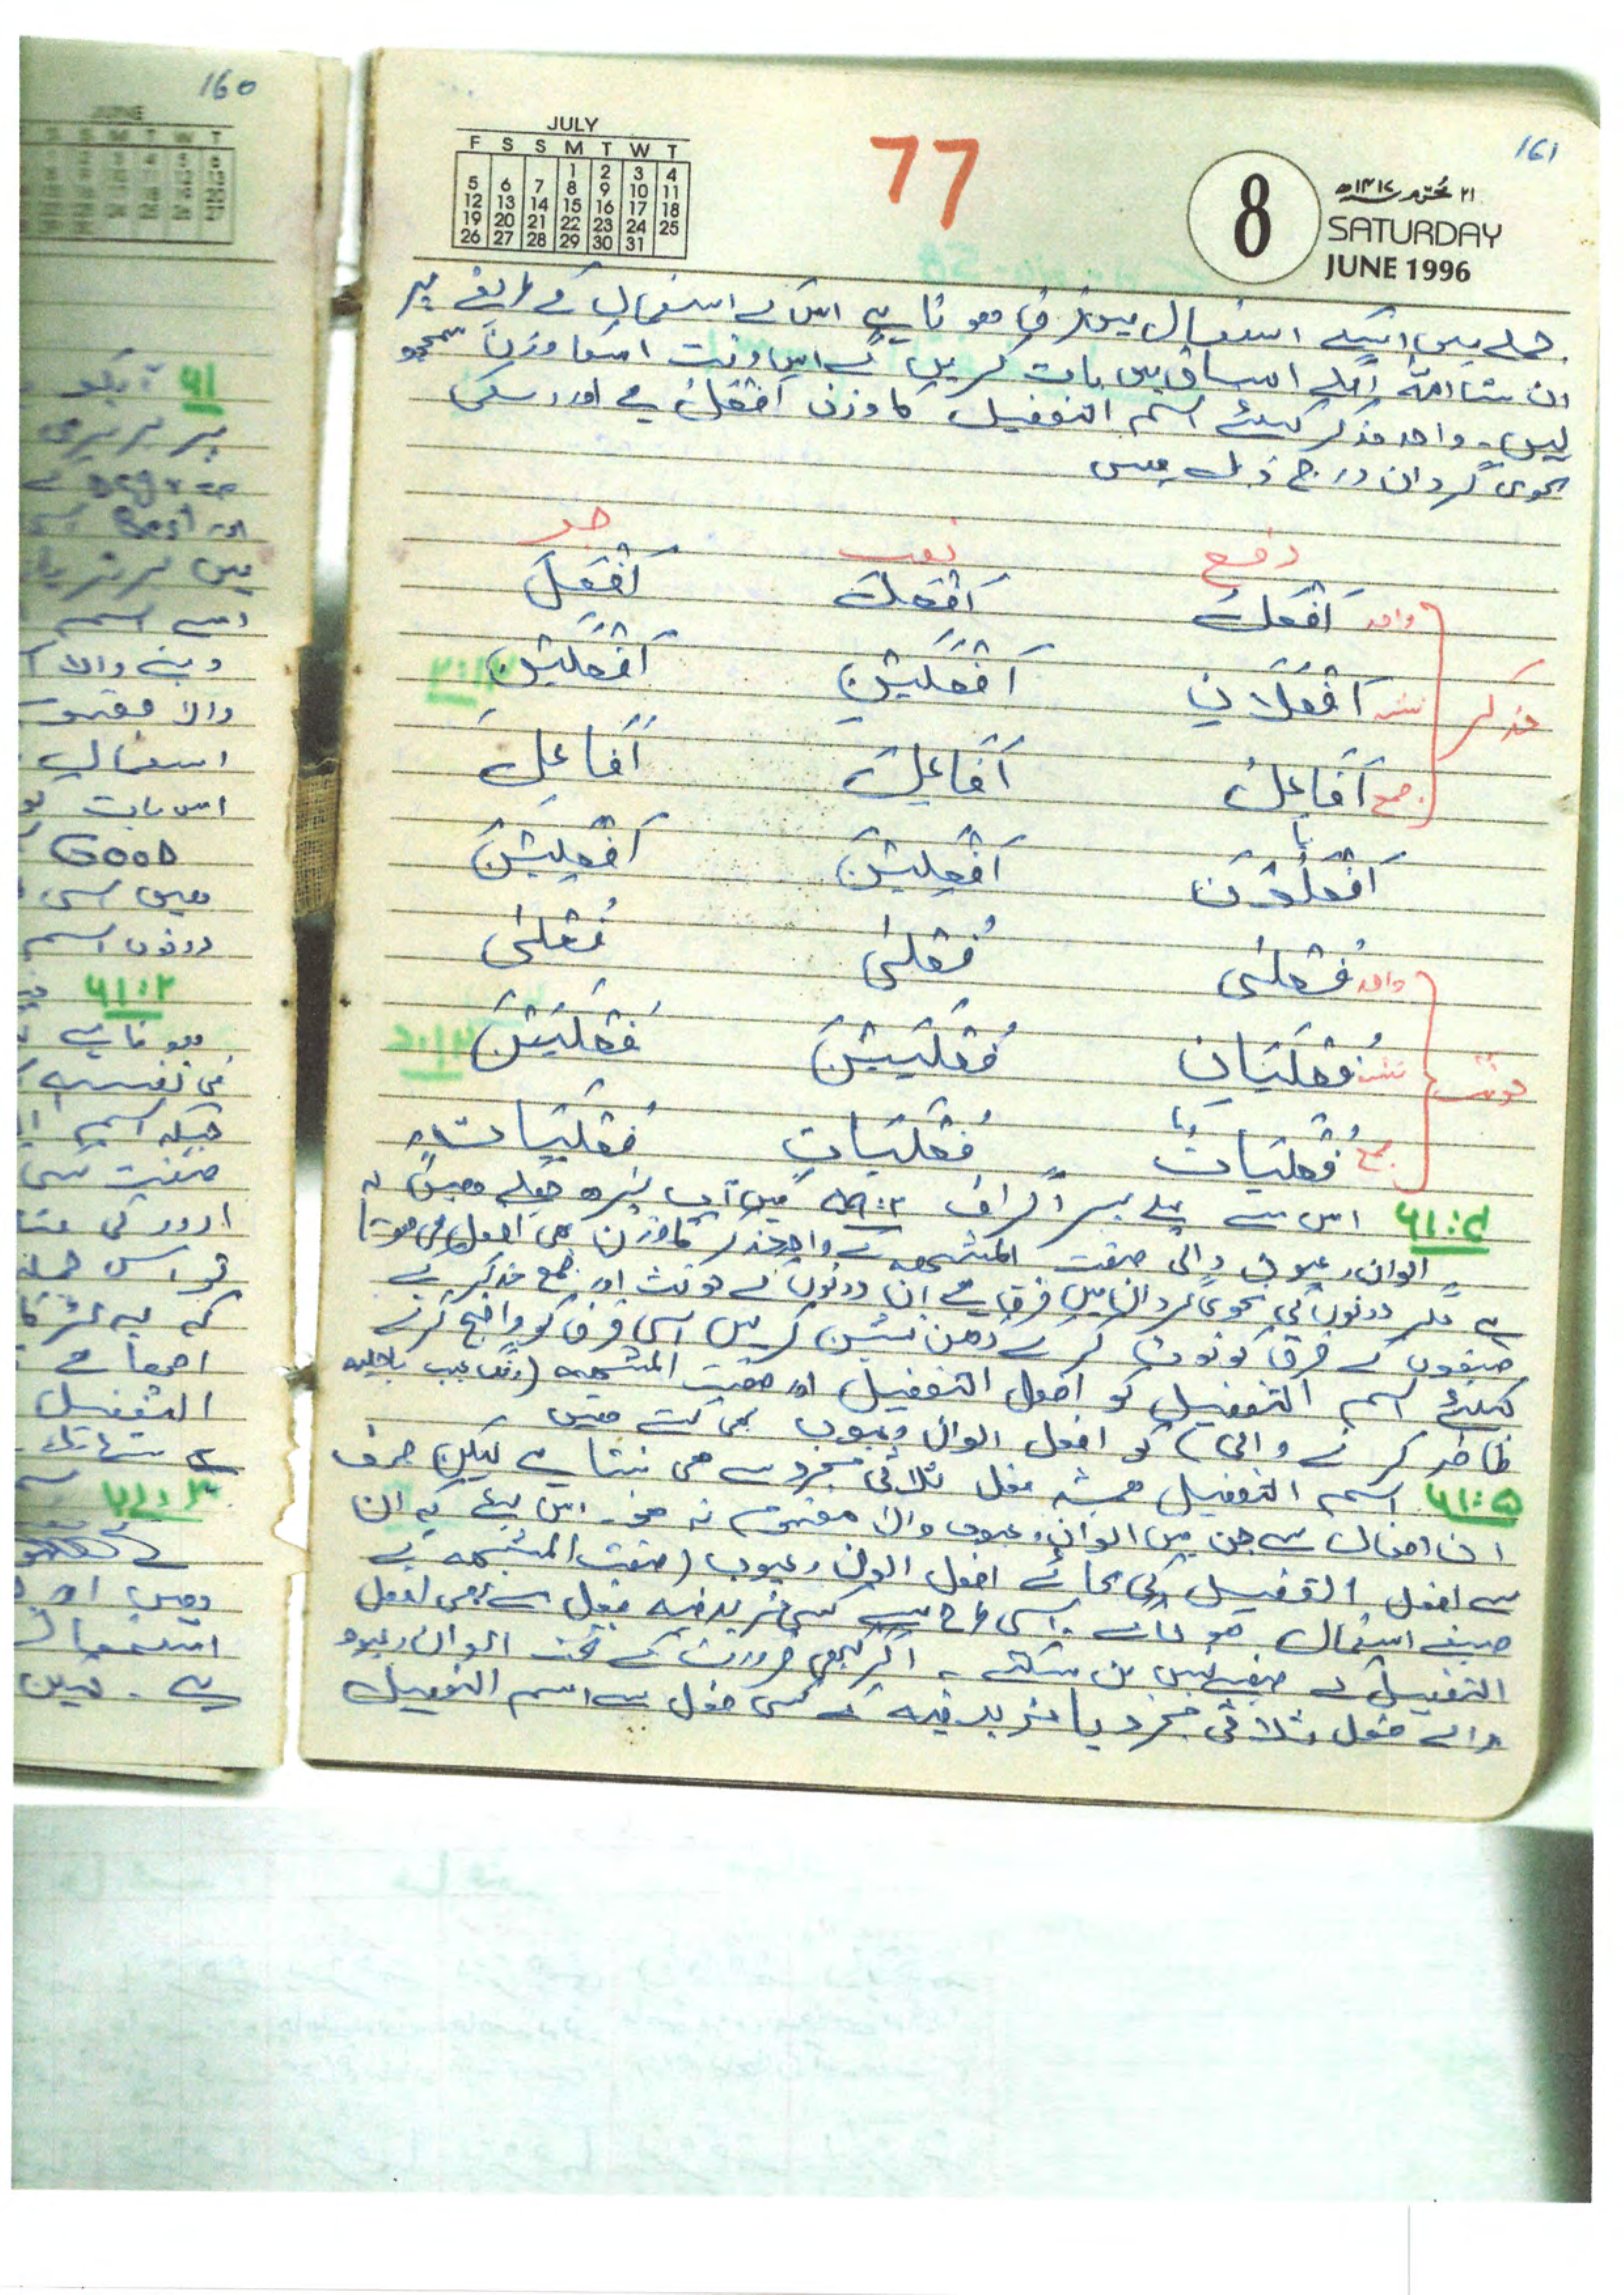 160
JUNE
161
JULY
F S S M T W T
1 2 3 4
5 6 7 8 9 10 11
12 13 14 15 16 17 18
19 20 21 22 23 24 25
26 27 28 29 30 31
77
8
٢١ محرم ١٤١٧ھ
SATURDAY
JUNE 1996
جملے میں انکے استعمال میں فرق ہوتا ہے اس کے استعمال کے طریقے پر
ان شاء اللہ اگلے اسباق میں بات کریں گے اس وقت اسکا وزن سمجھ
لیں۔ واحد مذکر کیلئے اسم التفضیل کا وزن اَفْعَلُ ہے اور اسکی
نحوی گردان درج ذیل ہیں
رفع نصب جر
مذکر
واحد اَفْعَلُ اَفْعَلَ اَفْعَلَ
تثنیہ اَفْعَلَانِ اَفْعَلَیْنِ اَفْعَلَیْنِ
جمع اَفَاعِلُ اَفَاعِلَ اَفَاعِلَ
یا
اَفْعَلُوْنَ اَفْعَلِیْنَ اَفْعَلِیْنَ
مونث
واحد فُعْلٰی فُعْلٰی فُعْلٰی
تثنیہ فُعْلَیَانِ فُعْلَیَیْنِ فُعْلَیَیْنِ
جمع فُعْلَیَاتٌ فُعْلَیَاتٍ فُعْلَیَاتٍ
۶۱:۴ اس سے پہلے پیراگراف ۵۹:۲ میں آپ پڑھ چکے ہیں کہ
الوان و عیوب والی صفت المشبھہ کے واحد مذکر کا وزن بھی افعل ہی ہوتا
ہے مگر دونوں کی نحوی گردان میں فرق ہے ان دونوں کے مونث اور جمع مذکر کے
صیغوں کے فرق کو نوٹ کر کے ذھن نشین کر لیں اسی فرق کو واضح کرنے
کیلئے اسم التفضیل کو افعل التفضیل اور صفت المشبھہ (رنگ عیب یا حلیہ
ظاھر کرنے والی) کو افعل الوان و عیوب بھی کہتے ھیں
۶۱:۵ اسم التفضیل ھمیشہ فعل ثلاثی مجرد سے ھی بنتا ہے لیکن صرف
ان افعال سے جن میں الوان و عیوب والا مفہوم نہ ھو۔ اس لیئے کہ ان
سے افعل التفضیل کی بجائے افعل الوان و عیوب (صفت المشبھہ) کے
صیغے استعمال ھوتے۔ اسی طرح سے کسی مزید فیہ فعل سے بھی افعل
التفضیل کے صیغے نہیں بن سکتے۔ اگر کبھی ضرورت کے تحت الوان و عیوب
والے فعل ثلاثی مجرد یا مزید فیہ کے کسی فعل سے اسم التفضیل
۶۱
Best
اسے اسم
دینے والا
والا مفہوم
استعمال
اس بات
GOOD
میں اسی
دونوں اسم
۶۱:۲
ہوتا ہے
جبکہ اسم
صفت کسی
اردو کی
تو اس جملہ
اچھا ہے
التفضیل
۶۱:۳
استعمال
ہے۔ لیکن